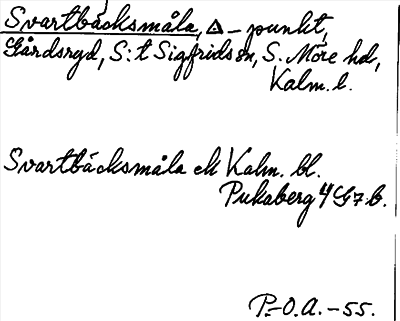 Svartbäcksmåla, △ - punkt,
Gårdsryd, S:t Sigfrids sn, S. Möre hd,
Kalm. l.
Svartbäcksmåla ek Kalm. bl.
Pukaberg 4 G7 b.
P.-O.A. - 55.